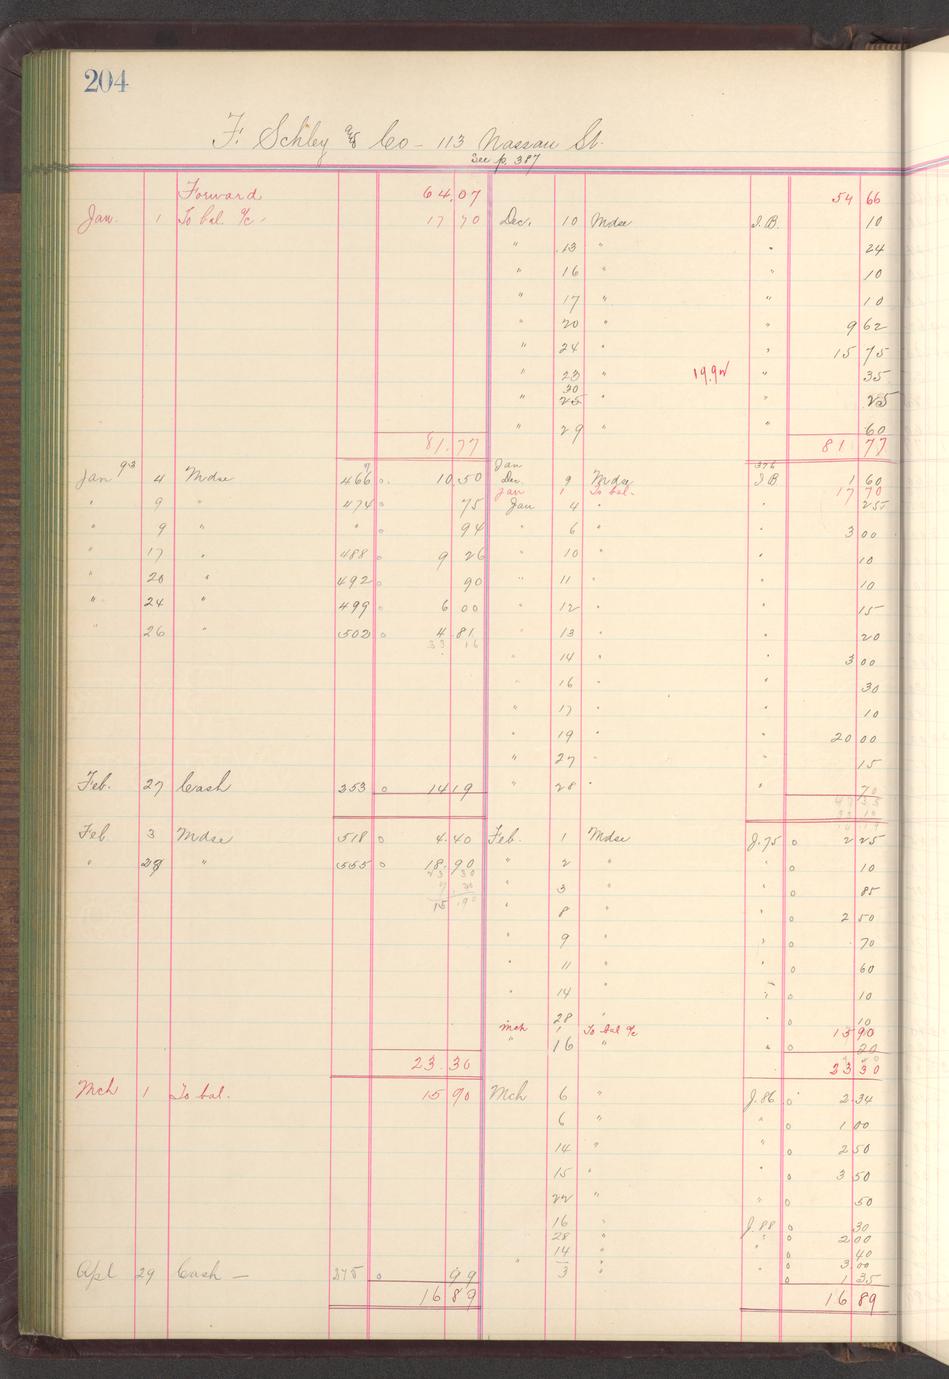 204
F. Schley & Co - 113 Nassau St.
See p. 387
Forward 64.07 54 66
Jan. 1 To bal. a/c - 17 70 Dec. 10 Mdse J.B. 10
" 13 " " 24
" 16 " " 10
" 17 " " 10
" 20 " " 9 62
" 24 " " 15 75
" 23 " 19.92 " 35
30
" 25 " 25
" 29 " 60
81.77 81 77
Jan 93 4 Mdse 466 o 10.50 Jan
Dec. 9 Mdse 376 J B 1 60
Jan 1 To bal. 17 70
" 9 " 474 o 75 Jan 4 " " 255
" 9 " " o 94 " 6 " 3 00
" 17 " 488 o 9 26 " 10 " " 10
" 20 " 492 o 90 " 11 " " 10
" 24 " 499 o 6 00 " 12 " " 15
" 26 " 502 o 4.81 " 13 " " 20
33 16
" 14 " " 3 00
" 16 " " 30
" 17 " " 10
" 19 " " 20 00
" 27 " " 15
Feb. 27 Cash 353 o 14 19 " 28 " " 70
Feb. 3 Mdse 518 o 4.40 Feb. 1 Mdse J.75 o 2 25
" 28 " 555 o 18.90 " 2 " " o 10
23 30
" 3 " " o 85
15 90
" 8 " " o 2 50
" 9 " " o 70
" 11 " o 60
" 14 " " o 10
28 " " o 10
Mch 1 To bal a/c 15 90
" 16 " " o 20
23.30 23 30
Mch 1 To bal. 15 90 Mch 6 " J.86 o 2.34
6 " " o 1 00
14 " " o 2 50
15 " " o 3 50
22 " " o 50
16 " J.88 o 30
28 " " o 2 00
14 " " o 40
Apl 29 Cash — 375 o 99 " 3 " " o 3.00
o 1 35
16 89 16 89